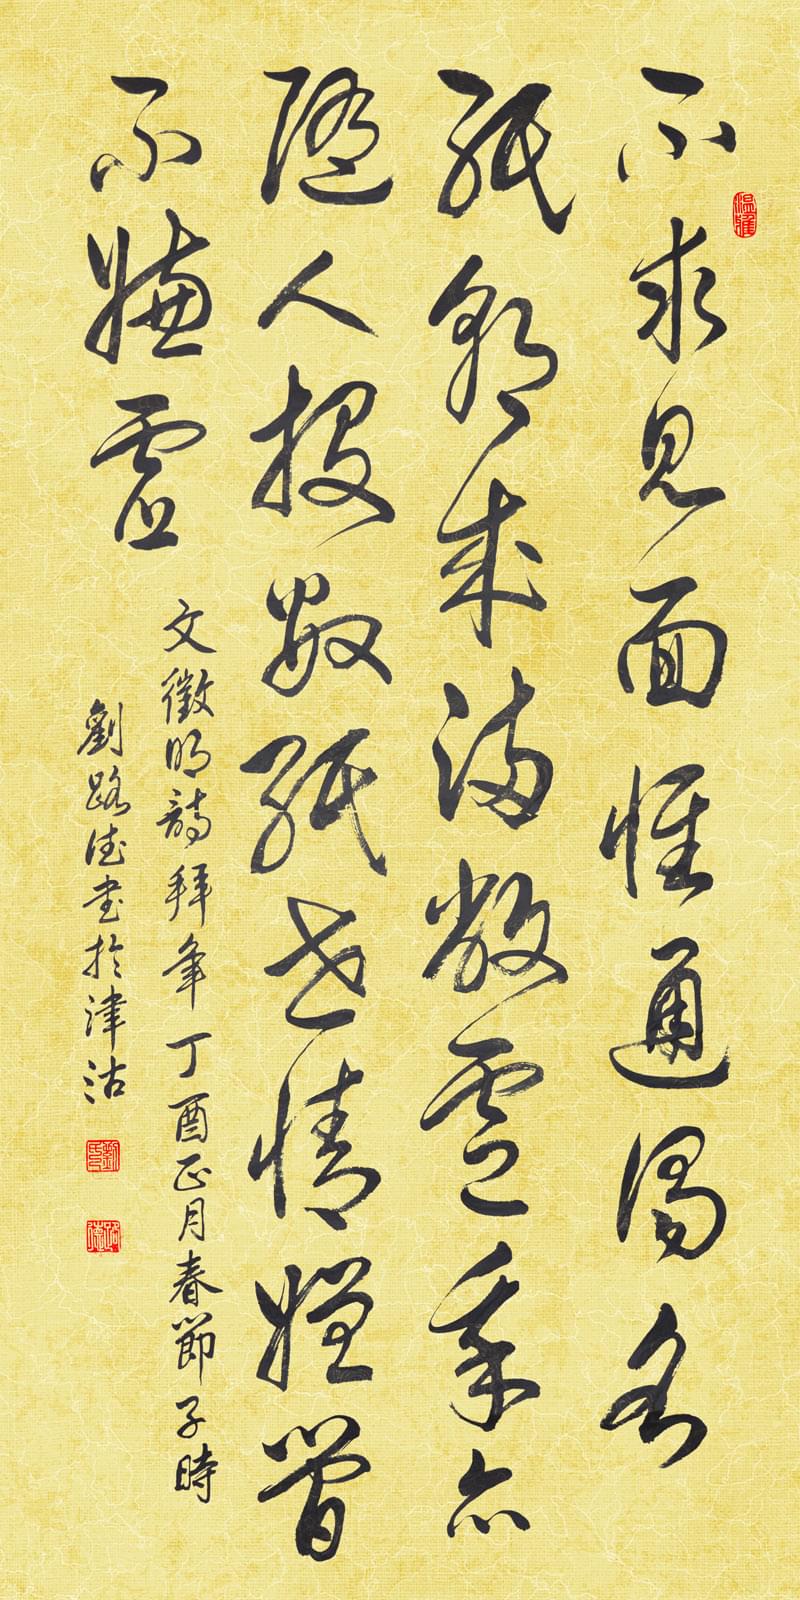 不求見面惟通謁名
紙朝來滿敝廬我亦
隨人投數紙世情嫌簡
不嫌虛
文徵明詩拜年丁酉正月春節子時
劉路德書於津沽
劉氏
路德